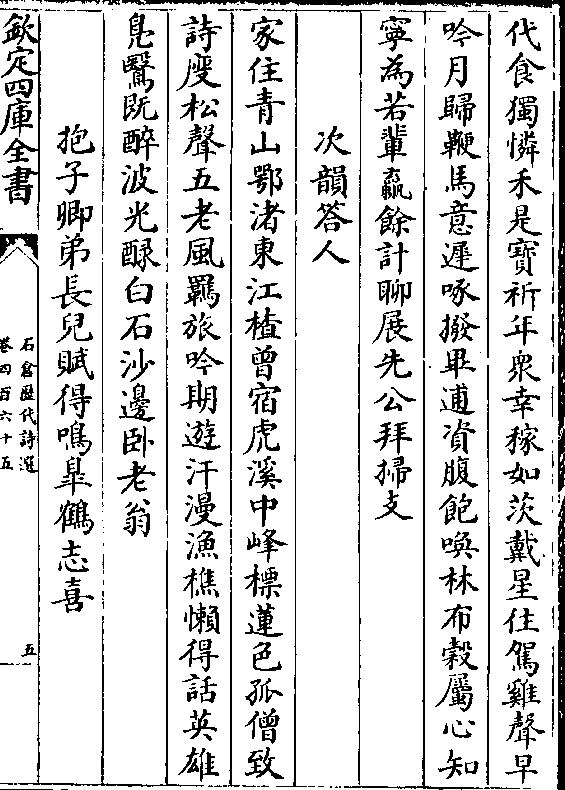 代食獨憐禾是寶祈年衆幸稼如茨戴星住駕雞聲早
吟月歸鞭馬意遲啄撥畢逋資腹飽喚林布穀屬心知
寧為若輩贏餘計聊展先公拜掃支
次韻答人
家住青山鄂渚東江楂曾宿虎溪中峰標蓮色孤僧致
詩度松聲五老風羈旅吟期遊汗漫漁樵懶得話英雄
鳬鷖既醉波光醁白石沙邊卧老翁
抱子卿弟長兒賦得鳴臯鶴志喜
欽定四庫全書
石倉歷代詩選
卷四百六十五
五